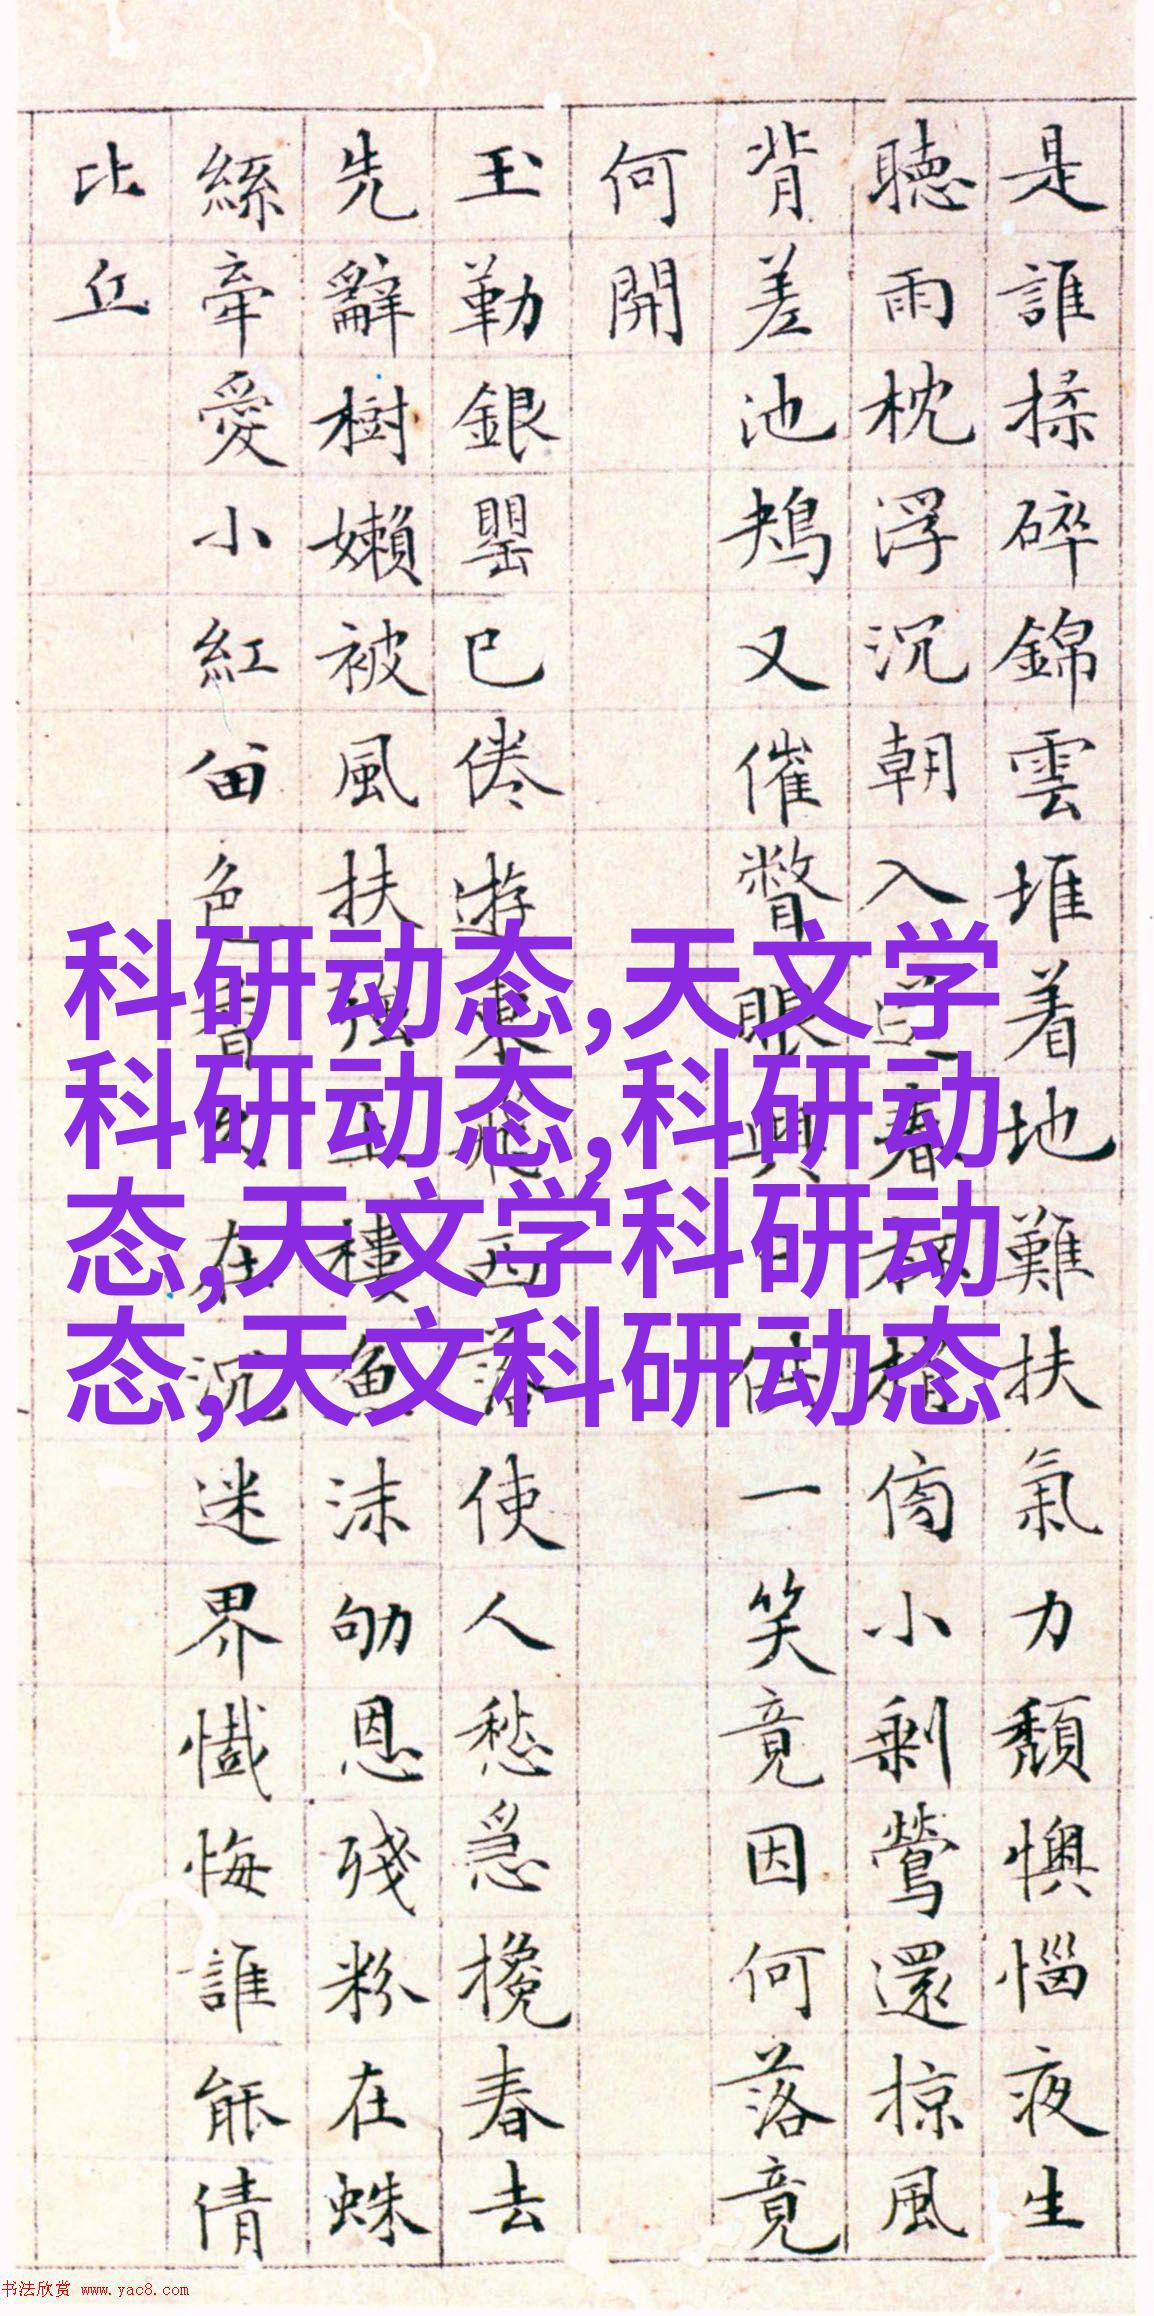 是誰揉碎錦雲堆着地難扶氣力頹懊惱夜生
聴雨枕浮沉朝入春傍小剩鶯還掠風
背差池鴂又催瞥眼興供一笑竟因何落竟
何開
玉勒銀罌已倦遊東飛西落使人愁急攙春去
先辭樹嬾被風扶強上樓魚沫劬恩殘粉在蛛
絲牽愛小紅留色香久在沉迷界懺悔誰能倩
比丘
科研动态,天文学
科研动态,科研动
态,天文学科研动
态,天文科研动态
书法欣赏 www.yac8.com